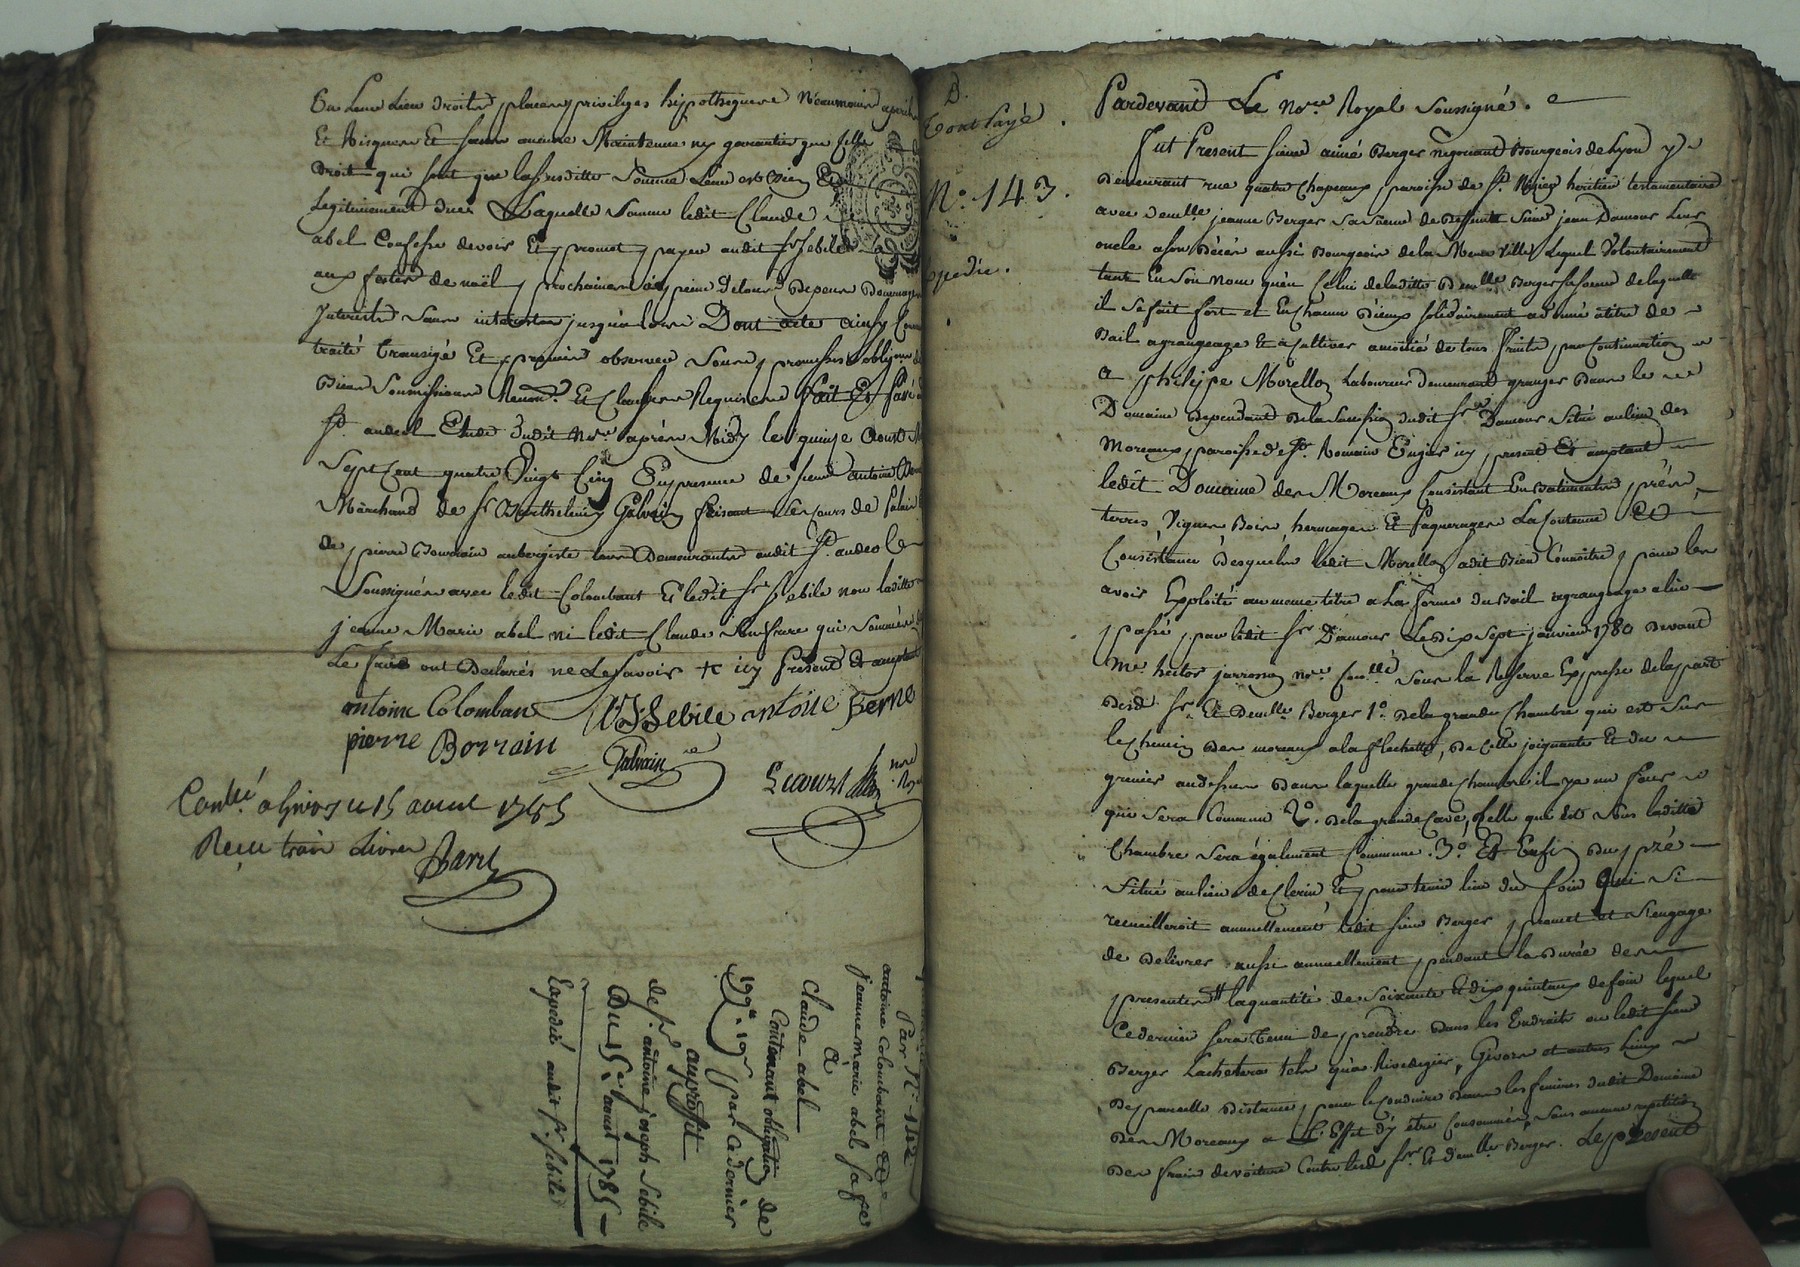 En Leur Lieu droits places privileges hypotheques Neaumoins
Et Risques Et sans aucune Maintenue ny garantie que
droit qui sont que la susditte Somme Leur est Bien Et
Legitimement due Laquelle Somme ledit Claude
abel Confesse devoir Et promet payer audit Sr Sebile
aux fettes de noël prochaines à peine de tous depens Dommages
Interets Sans jusqu'alors Dont acte ainsy
traité transigé Et promis observer Sous promesses obligaon de
Biens Soumissions Renonon Et Clauses Requises Fait Et Passé
St andeol Etude dudit Nore après Midy le quinze Aoust
Sept Cent quatre Vingt Cinq En presence de sieur antoine
Marchand de Sr Barthelemy Galvain faisant
de pierre Bourrain aubergiste tous Demeurants audit St andeol
Soussignés avec ledit Colombant Et ledit Sr Sebile non laditte
jeanne Marie abel ni ledit Claude Son frere qui Sommés
Le faire ont Declarés ne Le Savoir + icy Present Et aceptant
antoine Colomban AJSebile antoine Berne
pierre Borrain Galvain Lecourt nre
Conllé a Givors le 15 aoust 1785
Reçu trois Livres
Bari
Par No 142
antoine Colombant Et
jeanne marie abel Sa fe
à
Claude abel
Contenant obligation de
199# 19s par ce dernier
au proffit
de Sr antoine joseph Sebile
Du 15e aoust 1785
Expedié audit Sr Sebile
B.
Controlé.
No. 143.
expedié.
Pardevant Le Nore Royal Soussigné.
Fut Present Sieur aimé Berger negociant Bourgeois de Lyon y
demeurant rue quatre Chapeaux paroisse de St Nizier heritier testamentaire
avec demlle jeanne Berger Sa Soeur de deffunt Sieur jean Damour Leur
oncle a son décès aussi Bourgeois de la Meme Ville Lequel Volontairement
tant En Son Nom qu'en Celui de laditte Demlle Berger Sa Soeur de laquelle
il Se fait fort et En chacun d'ieux Solidairement a donné a titre de
Bail a grangeage Et a Cultiver a moitié de tous fruits par Continuation
a philippe Morellon Laboureur demeurant granger Dans le
Domaine dependant de la Succession dudit Sr Damour Situé au lieu des
Moreaux paroisse de St Romain En gier icy present Et aceptant
ledit Domaine des Moreaux Consistant En Batiments, prés,
terres, Vignes Bois hermages Et Paquerages La Contenue Et
Consistance desquels ledit Morellon a dit Bien Connoître pour les
avoir Exploité au meme titre a La forme du Bail a grangeage a lui
passé par ledit Sr Damour Le Dix Sept janvier 1780 Devant
Me hector jarrosson nre Conllé Sous la Reserve Expresse de la part
desd. Sr Et Demlle Berger 1o. De la grande Chambre qui est Sur
le Chemin des moreaux a la flachette, de Celle joignante Et du
grenier au dessus dans laquelle grande Chambre il y a un four
qui Sera Commun 2o. De la grande Cave, Celle qui est Sous laditte
Chambre Sera également Commune. 3o Et Enfin du pré
Situé au lieu de Clerin, Et pour tenir lieu du foin qui Si
recueilleroit annuellement ledit Sieur Berger promet et S'engage
de delivrer aussi annuellement pendant la Durée des
presentes la quantité de Soixante Et dix quintaux de foin lequel
Ce dernier Sera tenu de prendre dans les Endroits ou ledit Sieur
Berger L'achetera tels qu'a Rivedegier, Givors et autres Lieux
De pareille Distance, pour le Conduire dans les fenieres dudit Domaine
Des Moreaux a L'Effet d'y être Consommé, Sans aucune repetition
Des frais de voiture Contre lesd. Sr Et demlle Berger. Le present